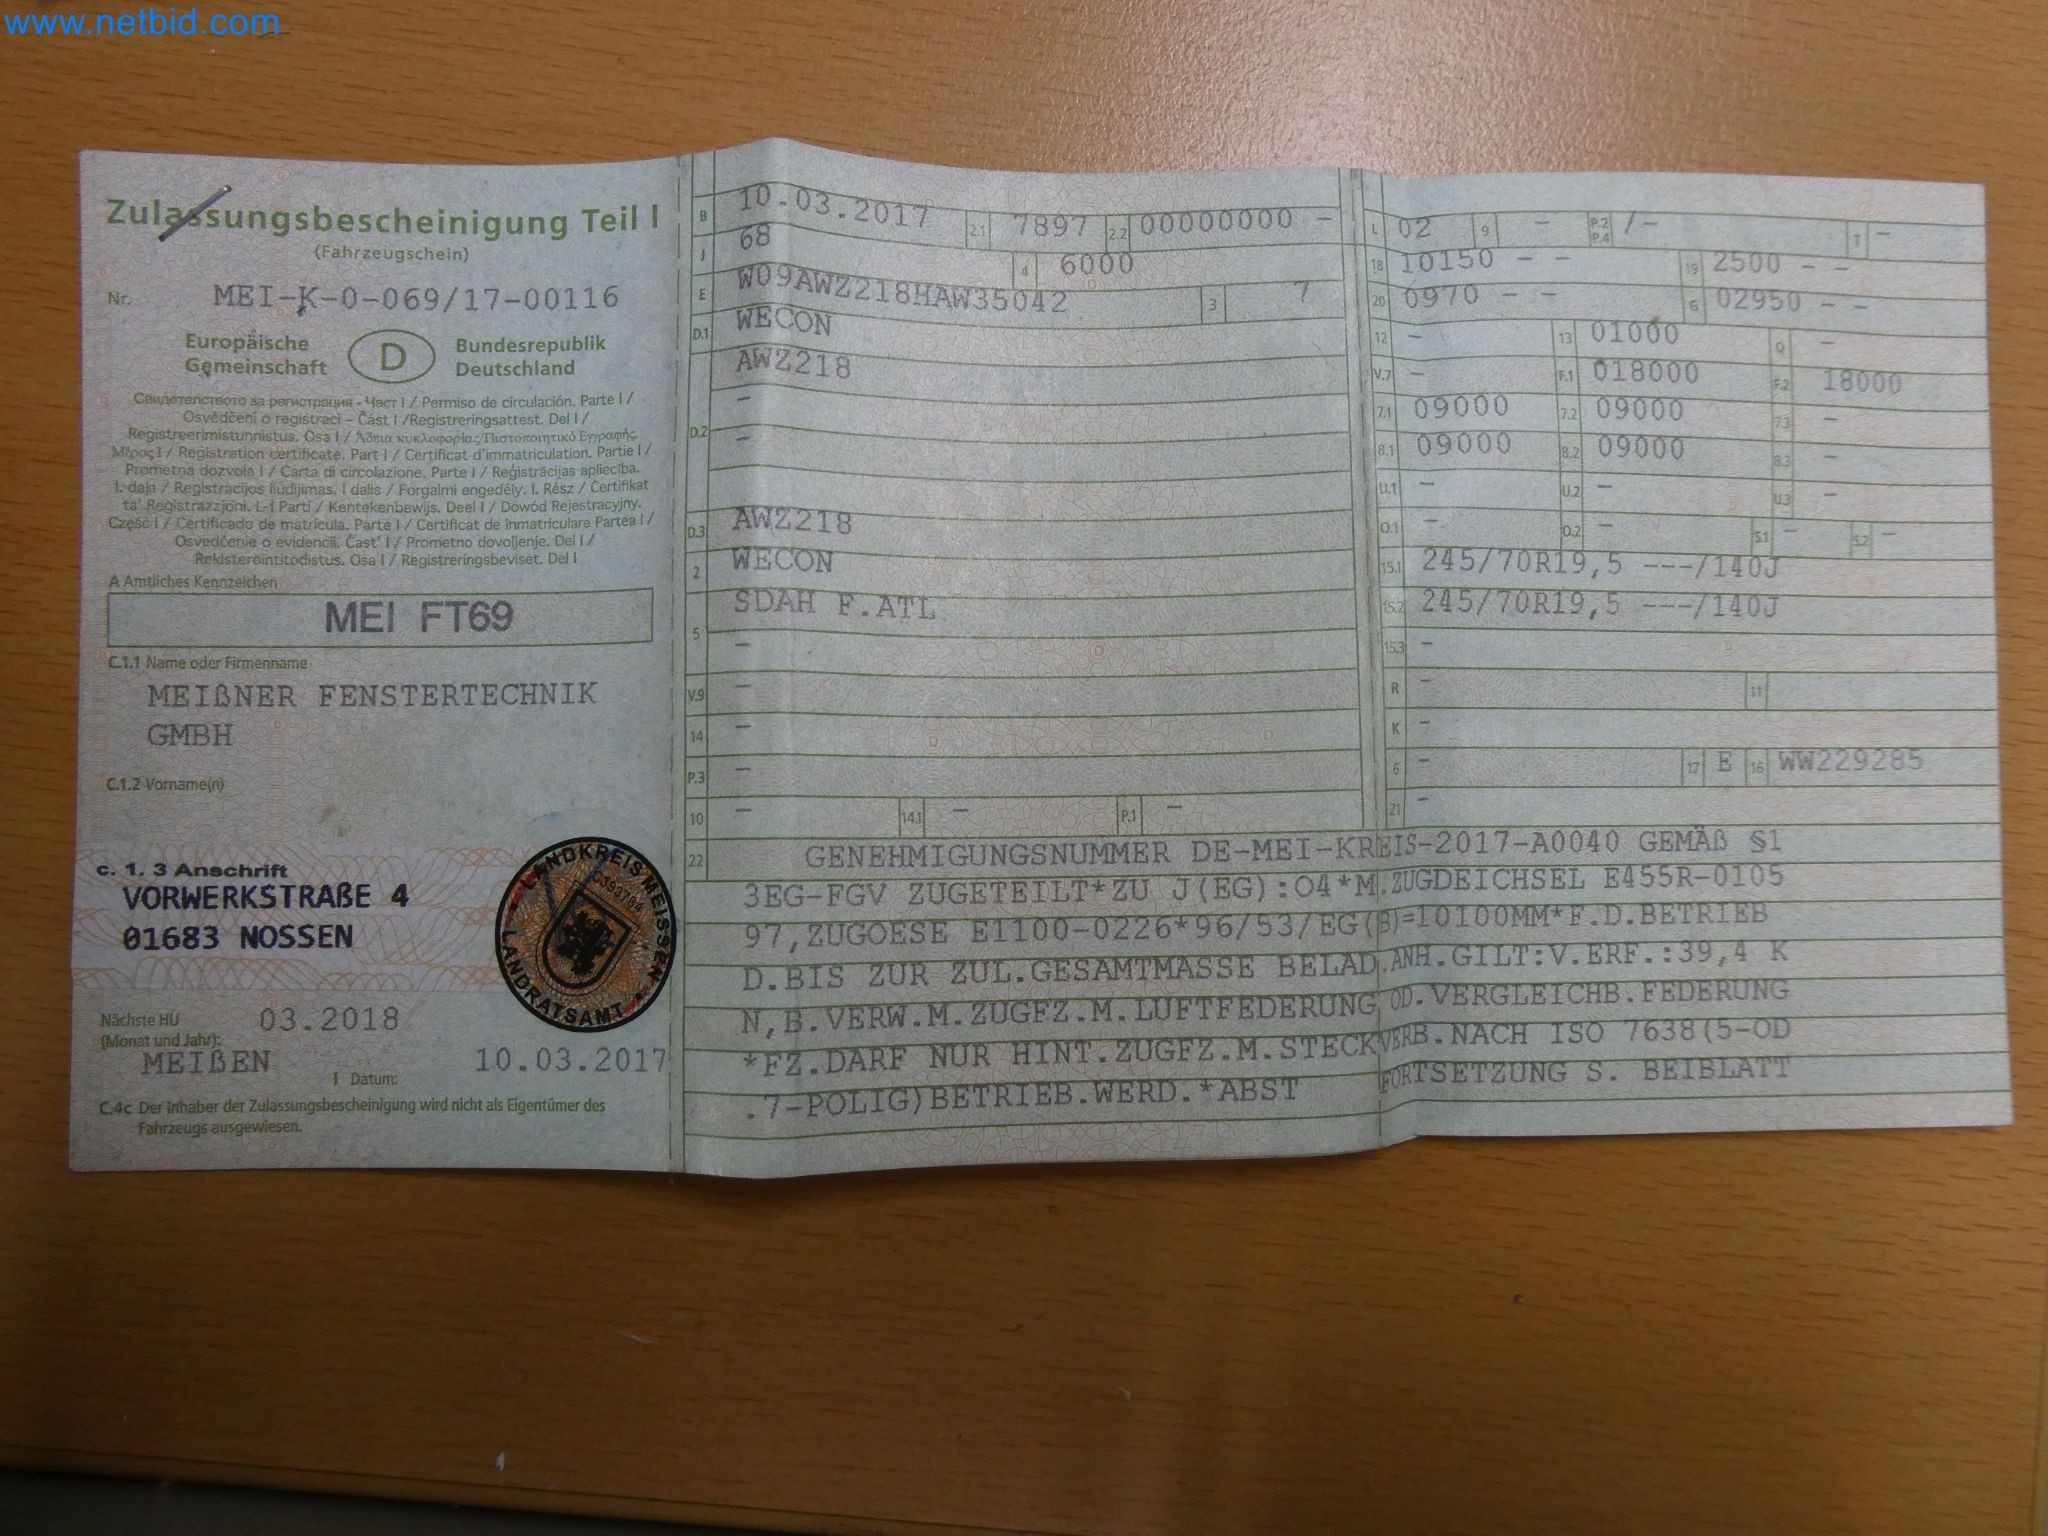 www.netbid.com
Zulassungsbescheinigung Teil I
(Fahrzeugschein)
Nr. MEI-K-0-069/17-00116
Europäische Gemeinschaft D Bundesrepublik Deutschland
Свидетелство за регистрация - Част I / Permiso de circulación. Parte I /
Osvědčení o registraci – Část I /Registreringsattest. Del I /
Registreerimistunnistus. Osa I / Άδεια κυκλοφορίας/Πιστοποιητικό Εγγραφής.
Μέρος I / Registration certificate. Part I / Certificat d'immatriculation. Partie I /
Prometna dozvola I / Carta di circolazione. Parte I / Reģistrācijas apliecība.
I. daļa / Registracijos liudijimas. I dalis / Forgalmi engedély. I. Rész / Ċertifikat
ta' Reġistrazzjoni. L-I Parti / Kentekenbewijs. Deel I / Dowód Rejestracyjny.
Część I / Certificado de matrícula. Parte I / Certificat de înmatriculare Partea I /
Osvedčenie o evidencii. Časť I / Prometno dovoljenje. Del I /
Rekisteröintitodistus. Osa I / Registreringsbeviset. Del I
A Amtliches Kennzeichen
MEI FT69
C.1.1 Name oder Firmenname
MEIßNER FENSTERTECHNIK
GMBH
C.1.2 Vorname(n)
c. 1. 3 Anschrift
VORWERKSTRAßE 4
01683 NOSSEN
LANDKREIS MEISSEN
LANDRATSAMT
Nächste HU 03.2018
(Monat und Jahr):
MEIßEN I Datum: 10.03.2017
C.4c Der Inhaber der Zulassungsbescheinigung wird nicht als Eigentümer des
Fahrzeugs ausgewiesen.
B 10.03.2017 2.1 7897 2.2 00000000 -
J 68 4 6000
E W09AWZ218HAW35042 3 7
D.1 WECON
AWZ218
-
D.2 -
D.3 AWZ218
2 WECON
SDAH F.ATL
5 -
V.9 -
14 -
P.3 -
10 - 14.1 - P.1 -
L 02 9 - P.2 P.4 /- T -
18 10150 - - 19 2500 - -
20 0970 - - G 02950 - -
12 - 13 01000 Q -
V.7 - F.1 018000 F.2 18000
7.1 09000 7.2 09000 7.3 -
8.1 09000 8.2 09000 8.3 -
U.1 - U.2 - U.3 -
O.1 - O.2 - S.1 - S.2 -
15.1 245/70R19,5 ---/140J
15.2 245/70R19,5 ---/140J
15.3 -
R - 11
K -
6 - 17 E 16 WW229285
21 -
22 GENEHMIGUNGSNUMMER DE-MEI-KREIS-2017-A0040 GEMÄß §1
3EG-FGV ZUGETEILT*ZU J(EG):O4*M.ZUGDEICHSEL E455R-0105
97,ZUGOESE E1100-0226*96/53/EG(B)=10100MM*F.D.BETRIEB
D.BIS ZUR ZUL.GESAMTMASSE BELAD.ANH.GILT:V.ERF.:39,4 K
N,B.VERW.M.ZUGFZ.M.LUFTFEDERUNG OD.VERGLEICHB.FEDERUNG
*FZ.DARF NUR HINT.ZUGFZ.M.STECKVERB.NACH ISO 7638(5-OD
.7-POLIG)BETRIEB.WERD.*ABST FORTSETZUNG S. BEIBLATT